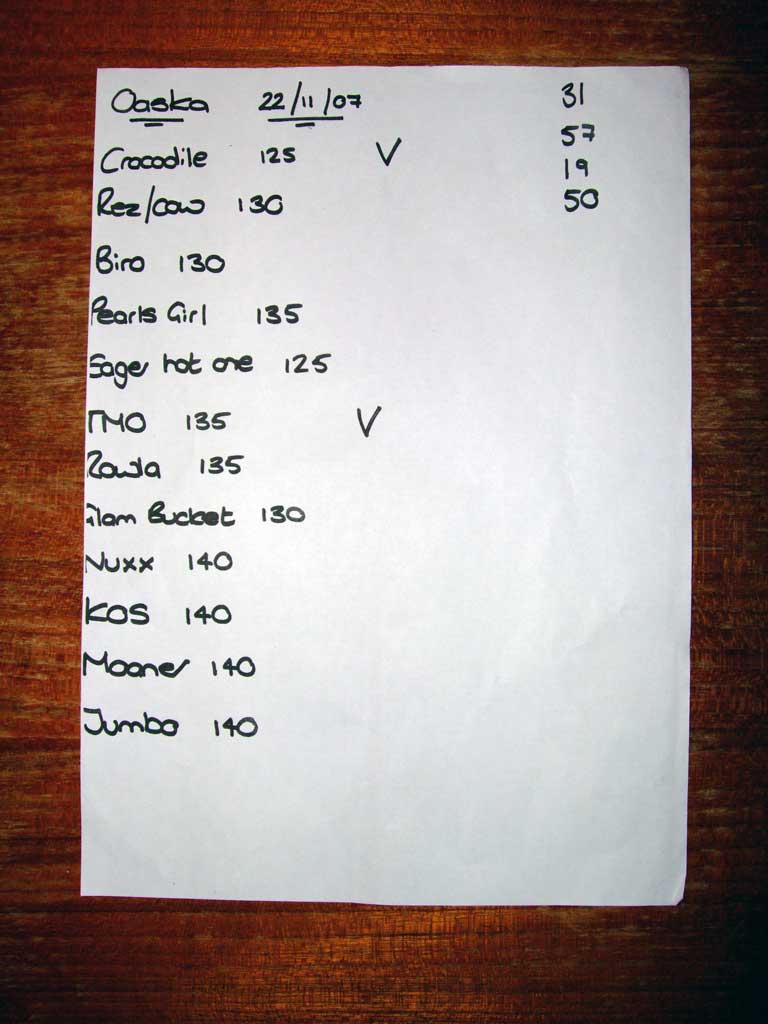 Oaska 22/11/07 31
57
Crocodile 125 V
19
Rez/cow 130 50
Biro 130
Pearls Girl 135
Sager hot one 125
TMO 135 V
Rowla 135
Glam Bucket 130
Nuxx 140
KOS 140
Mooner 140
Jumbo 140